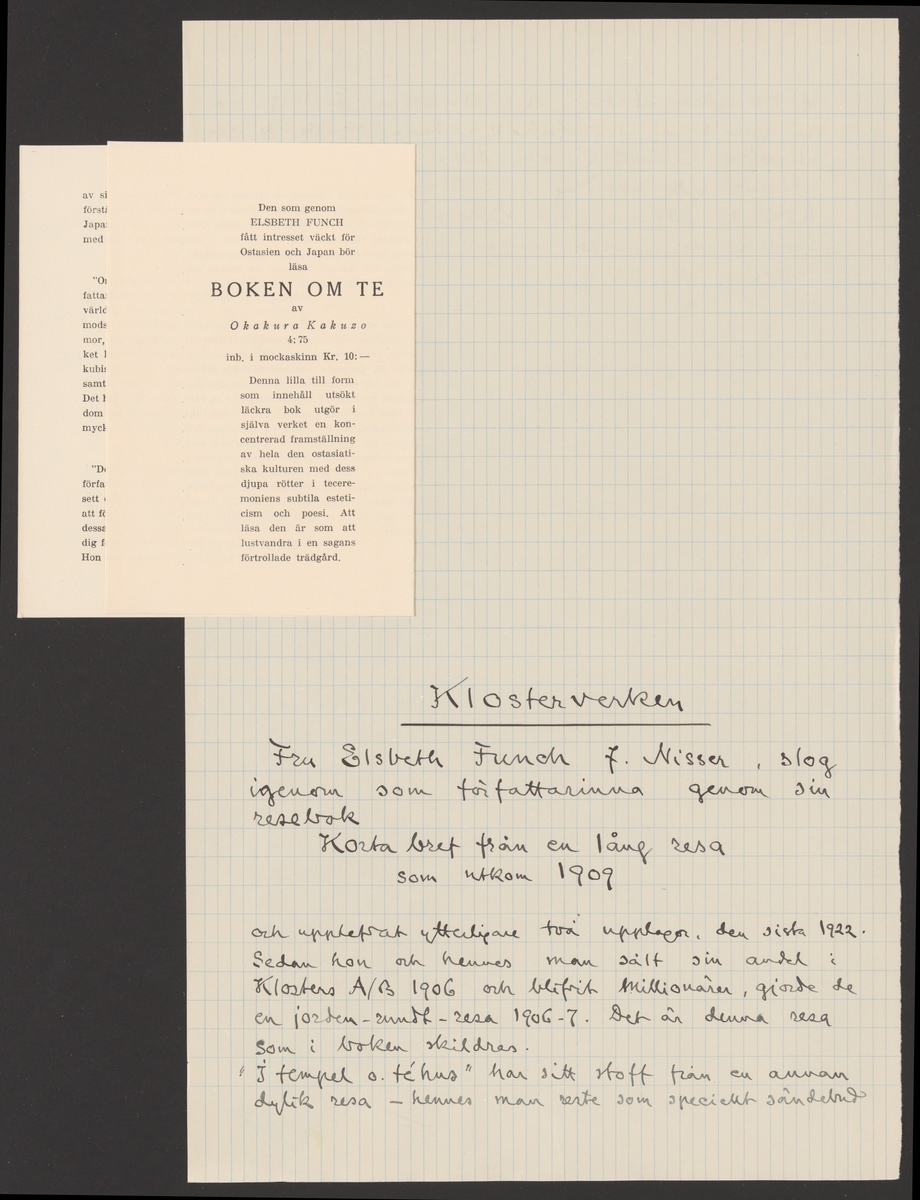 av si
försti
Japa
med
"Or
fatta
värld
mods
mor,
ket l
kubis
samt
Det h
dom
myck
"De
förfa
sett
att fö
dessa
dig f
Hon
Den som genom
ELSBETH FUNCH
fått intresset väckt för
Ostasien och Japan bör
läsa
BOKEN OM TE
av
Okakura Kakuzo
4:75
inb. i mockaskinn Kr. 10:—
Denna lilla till form
som innehåll utsökt
läckra bok utgör i
själva verket en kon-
centrerad framställning
av hela den ostasiati-
ska kulturen med dess
djupa rötter i tecere-
moniens subtila esteti-
cism och poesi. Att
läsa den är som att
lustvandra i en sagans
förtrollade trädgård.
Klosterverken
Fru Elsbeth Funch f. Nisser, slog
igenom som författarinna genom sin
resebok
Korta bref från en lång resa
som utkom 1909
och upplefvat ytterligare två upplagor, den sista 1922.
Sedan hon och hennes man sålt sin andel i
Klosters A/B 1906 och blifvit Millionärer, gjorde de
en jorden-rundt-resa 1906-7. Det är denna resa
som i boken skildras.
"I tempel o. téhus" har sitt stoff från en annan
dylik resa – hennes man reste som speciellt sändebud